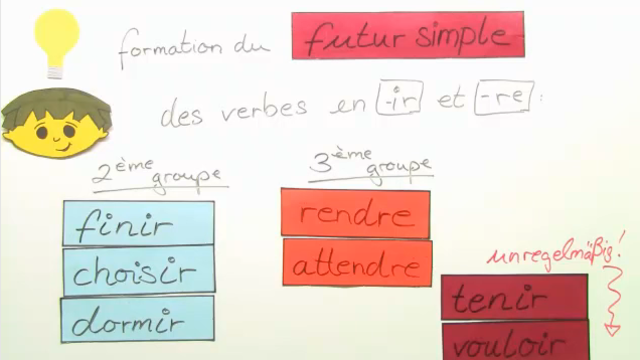 formation du futur simple
des verbes en -ir et -re :
2ème groupe
3ème groupe
finir
rendre
choisir
attendre
dormir
unregelmäßig!
tenir
vouloir